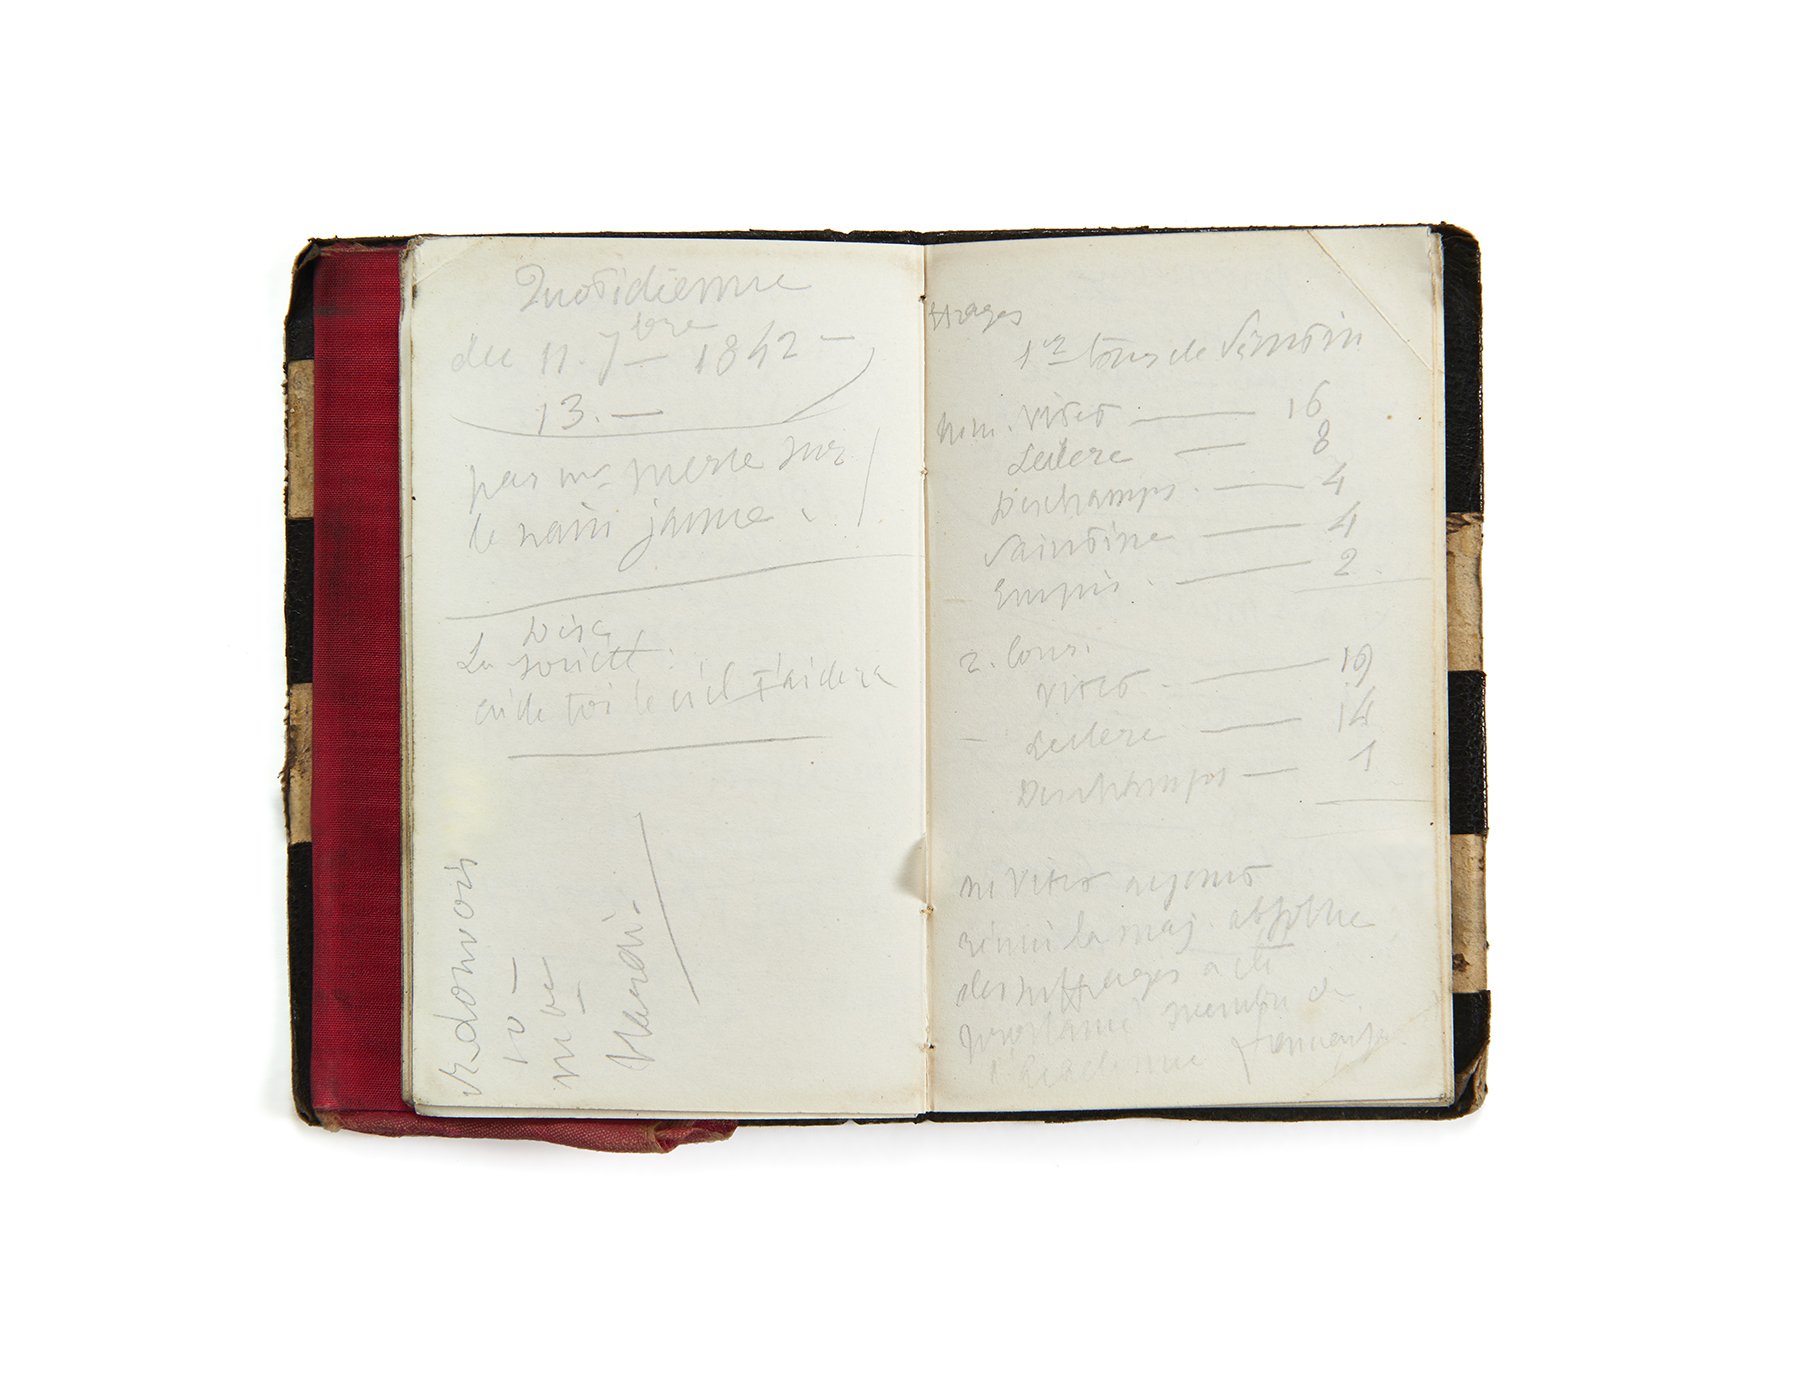 Quotidienne
du 11. 7bre 1842 —
13. —
par mr merle sur
le nain jaune.
Dire
La société:
aide toi le ciel t'aidera
Redonnois
10
Mardi.
1er tour de Scrutin
Vitet — 16
Leclerc — 8
Deschamps. — 4
Saintine — 4
Empis. — 2.
2. tour.
Vitet. — 19
Leclerc — 14
Deschamps — 1
mr Vitet ayant
réuni la maj. absolue
des suffrages a été
proclamé membre de
l'Académie française.